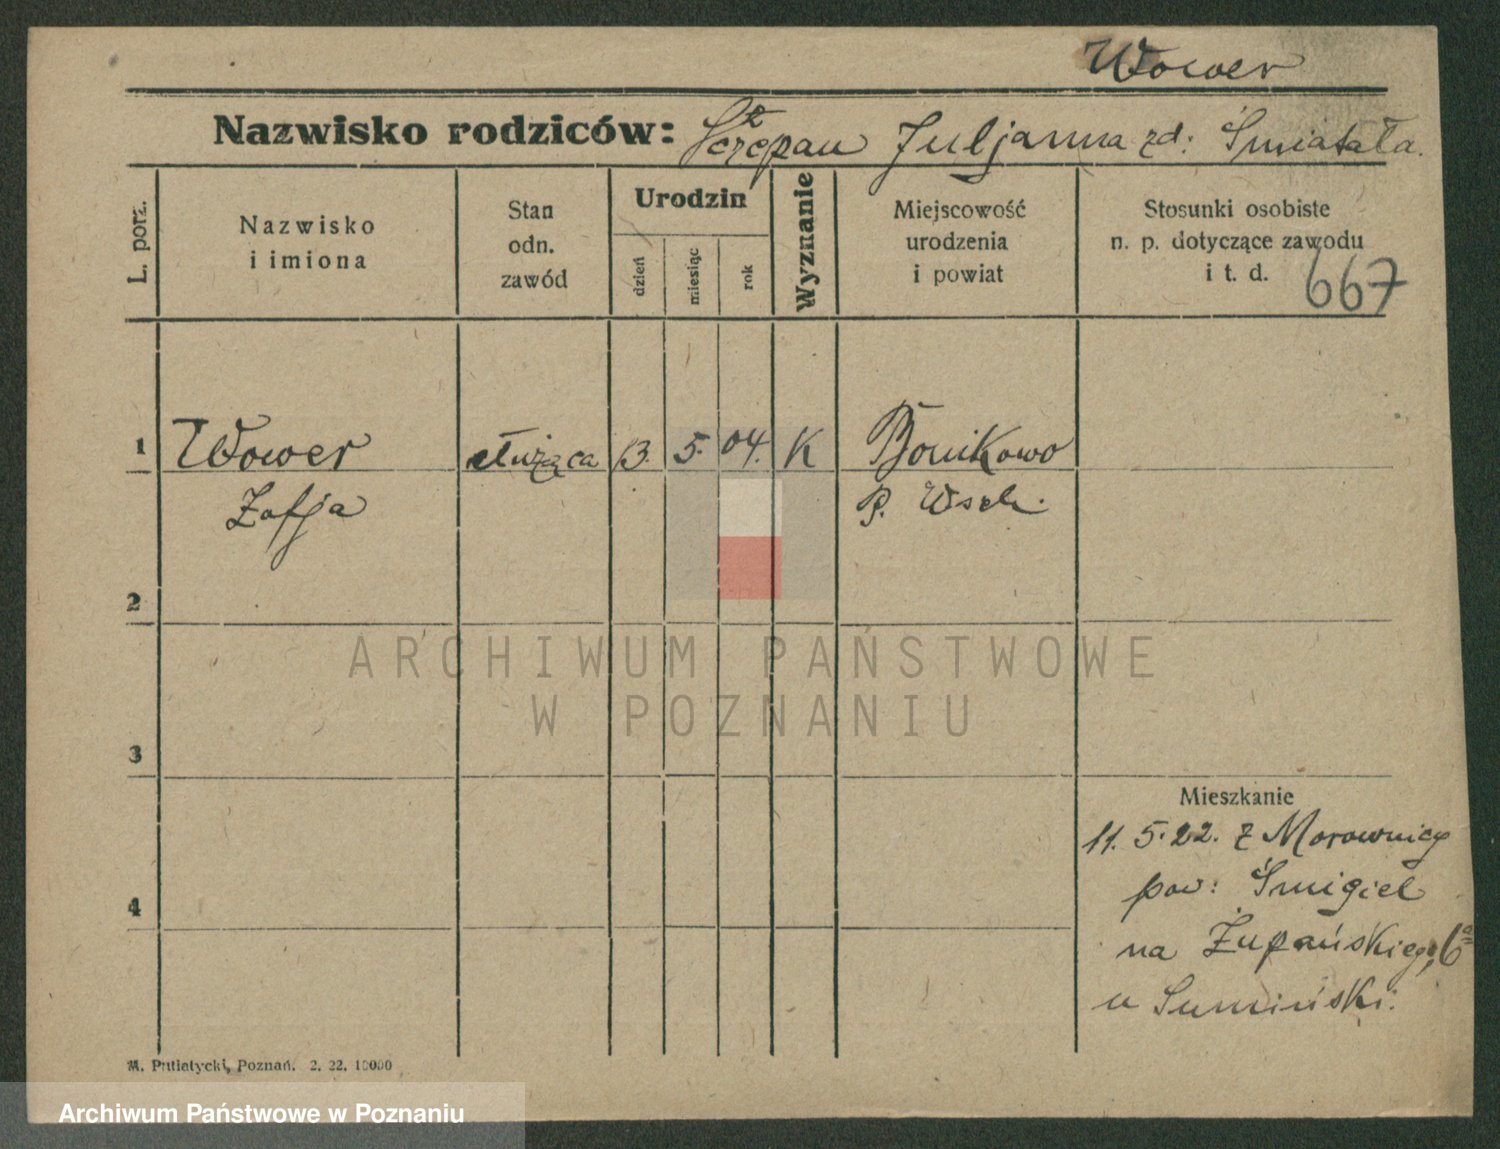 Wower
Nazwisko rodziców: Szczepan Juljanna zd: Śmiatała.
L. porz.
Nazwisko
i imiona
Stan
odn.
zawód
Urodzin
dzień
miesiąc
rok
Wyznanie
Miejscowość
urodzenia
i powiat
Stosunki osobiste
n. p. dotyczące zawodu
i t. d.
667
1 Wower służąca 13. 5. 04. K Bonikowo
Zofja P.
2
3
4
Mieszkanie
11. 5. 22. z Morownicy
pow: Śmigiel
na Żupańskiego, 6a
u Sumiński.
M. Putiatycki, Poznań. 2. 22. 10000
ARCHIWUM PAŃSTWOWE
W POZNANIU
Archiwum Państwowe w Poznaniu